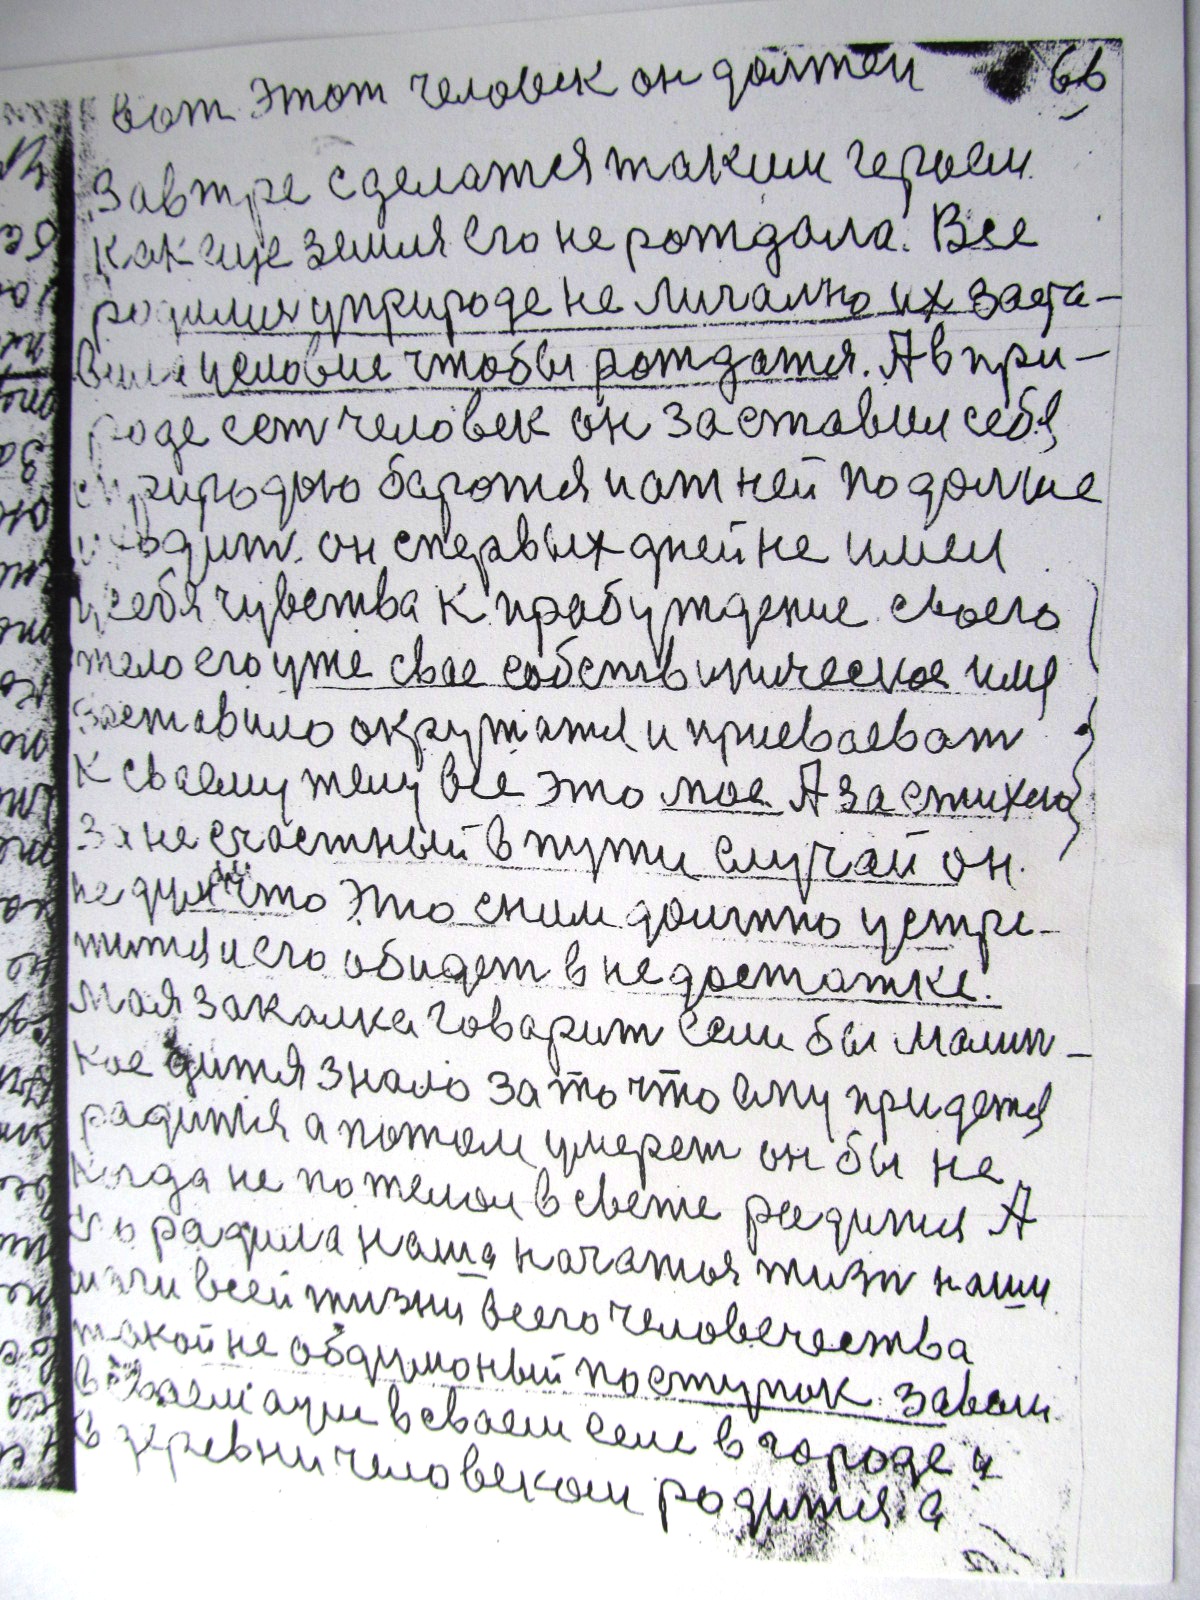 66
вот этот человек он должен
Завтре сделатся таким героем
как еще земля его не рождала. Все
родилися у природе не личално их заста-
вила условие чтобы рождатся. А в при-
роде сет человек он заставил себя
с природою баротся и от ней подальше
ходит. он с первых дней не имел
у себя чувства к прабуждение своего
тело его уже свае собствиническое имя
заставило окружатся и присваеват
К сваему телу все это мое А за стихею
За не счастный в пути случай он
не думал что это сним должно устре-
тится и его обидет в недостатке.
Моя закалка говорит если бы малин-
кое дитя знало за то что ему придется
радится а потом умерет он бы не
когда не пожелал в свете радится А
его радила наша начатья жизн наши
мазги всей жизни всего человечества
такой не обдуманый поступок завели
в семли в сваем селе в городе и
в деревни человеком родится а